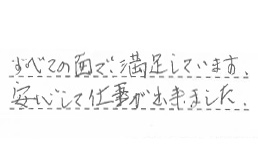 すべての面で、満足しています。
安心して仕事が出来ました。